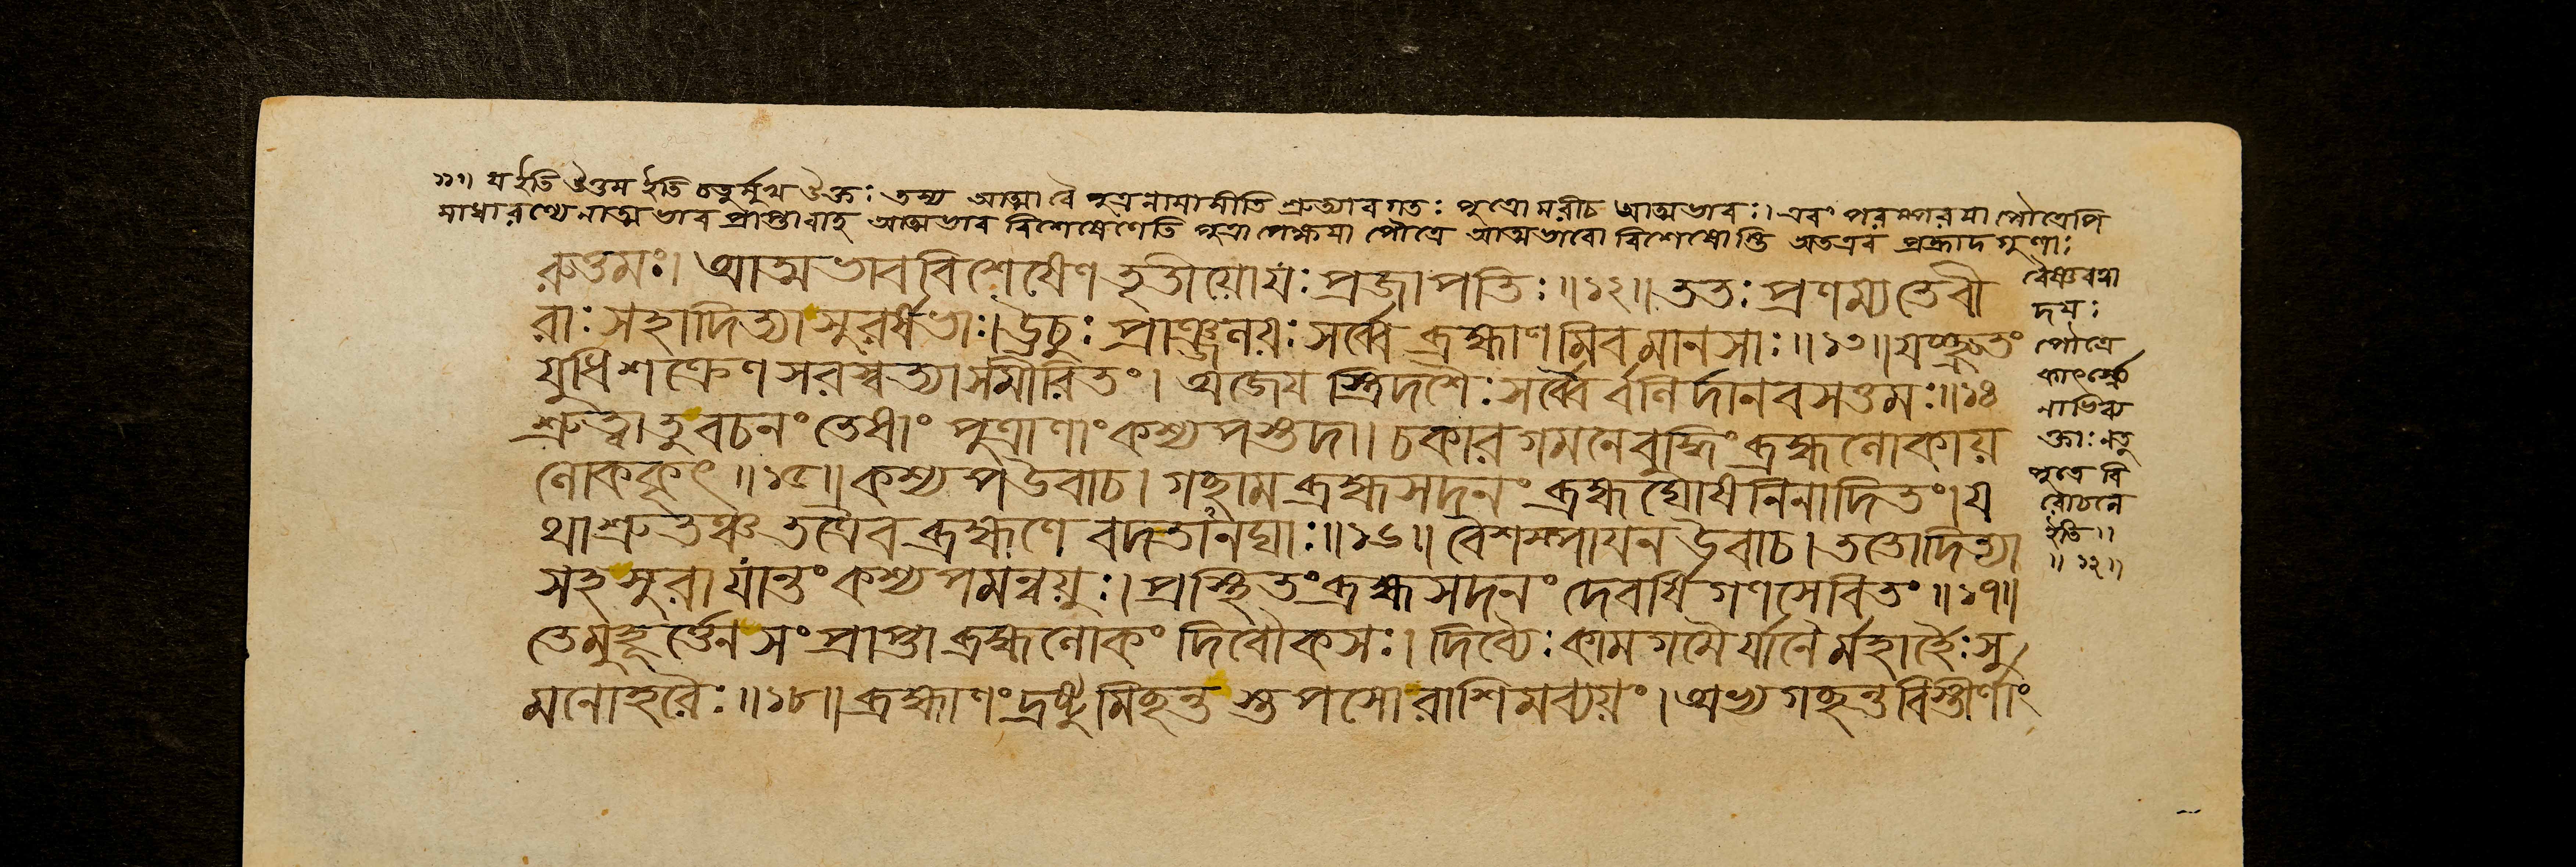 ১১॥ য ইতি উত্তম ইতি চতুর্মুখ উক্তঃ তস্য আত্মা বৈ পুত্রনামাসীতি শ্রুত্যাবগতঃ পুত্রো মরীচ আত্মভাবঃ। এবং পরম্পরয়া পৌত্রেপি
সাধারণ্যেনাত্মভাব প্রাপ্তাবাহ আত্মভাব বিশেষেণেতি পুত্রাপেক্ষয়া পৌত্রে আত্মভাবো বিশেষোস্তি অতএব প্রহ্রাদ গুণাঃ
রুত্তমঃ। আত্মভাববিশেষেণ তৃতীয়োযং প্রজাপতিঃ॥১২॥ ততঃ প্রণম্য তেবী
রাঃ সহাদিত্যা সুরর্ষভাঃ। ঊচুঃ প্রাঞ্জলয়ঃ সর্ব্বে ব্রহ্মাণমিবমানসাঃ॥১৩॥ যচ্ছ্রুতং
যুধি শক্রেণ সরস্বত্যা সমীরিতং। অজেয স্ত্রিদশৈঃ সর্ব্বৈর্বলির্দানবসত্তমঃ॥১৪
শ্রুত্বা তু বচনং তেষাং পুত্রাণাং কশ্যপস্তদা। চকার গমনে বুদ্ধিং ব্রহ্মলোকায়
লোককৃৎ॥১৫॥ কশ্যপ উবাচ। গচ্ছাম ব্রহ্মসদনং ব্রহ্মঘোষনিনাদিতং। য
থাশ্রুতঞ্চ তত্রৈব ব্রহ্মণে বদতানঘাঃ॥১৬॥ বৈশম্পায়ন উবাচ। ততোদিত্যা
সহ সুরা যান্তং কশ্যপমন্বয়ুঃ। প্রস্থিতং ব্রহ্মসদনং দেবর্ষিগণসেবিতং॥১৭॥
তে মুহূর্ত্তেন সং প্রাপ্তা ব্রহ্মলোকং দিবৌকসঃ। দিব্যৈঃ কামগমৈর্যানৈর্মহার্হৈঃ সু
মনোহরৈঃ॥১৮॥ ব্রহ্মাণং দ্রষ্টুমিচ্ছন্ত স্তপসো রাশিমব্যয়ং। অভ্যগচ্ছন্ত বিস্তীর্ণাং
বৈষ্ণবত্বা
দয়ঃ
পৌত্রে
কার্ৎস্নে
নাভিব্য
ক্তাঃ নতু
পুত্রে বি
রোচনে
ইতি॥
॥১২॥